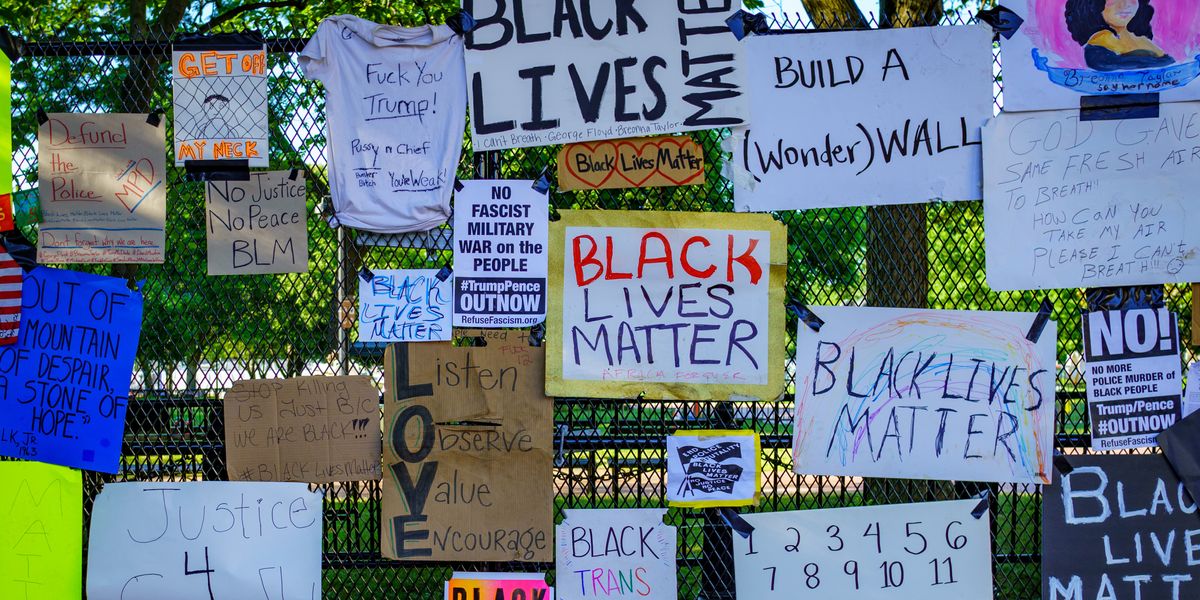 GET OFF
MY NECK
Defund
the
Police
MPD
Don't forget why we are here
No Justice
No Peace
BLM
Fuck You
Trump!
Pussy n Chief
Bunker
Bitch
You're Weak!
BLACK
LIVES
MATTER
I can't Breath · George Floyd · Breonna Taylor
Black Lives Matter
BUILD A
(Wonder) WALL
Breonna Taylor
say her name
GOD GAVE
SAME FRESH AIR
TO BREATH!!
HOW CAN YOU
TAKE MY AIR
PLEASE I CAN'T
BREATH!!!
NO
FASCIST
MILITARY
WAR on the
PEOPLE
#TrumpPence
OUTNOW
RefuseFascism.org
BLACK
LIVES
MATTER
BLACK
LIVES
MATTER
OUT OF
MOUNTAIN
OF DESPAIR,
A STONE OF
HOPE."
LK, JR
1963
Stop Killing
us Just B/C
WE ARE BLACK!!!
#BLACK Lives Matter
Listen
Observe
Value
Encourage
BLACK LIVES
MATTER
NO!
NO MORE
POLICE MURDER of
BLACK PEOPLE
Trump/Pence
#OUTNOW
RefuseFascism.org
END POLICE BRUTALITY
BLACK LIVES
MATTER
NO JUSTICE
NO PEACE
Justice
4
BLACK
TRANS
BLACK
1 2 3 4 5 6
7 8 9 10 11
BLAC
LIVE
MATT